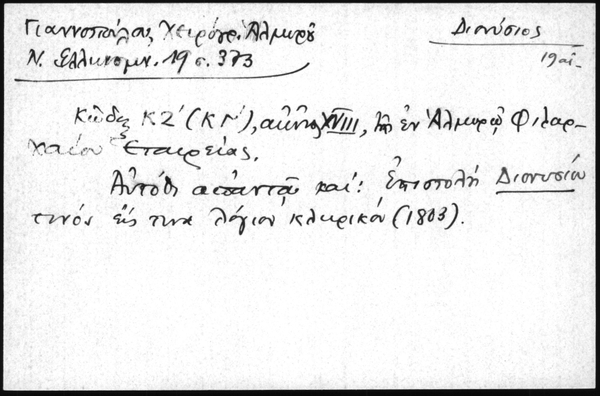 Γιαννοπούλου, Χειρόγρ. Ἁλμυροῦ
Ν. Ἑλληνομν. 19 σ. 373
Διονύσιος
19 αἰ.
Κῶδιξ ΚΖ' (ΚΓ'), αἰῶνος XVIII, τῆς ἐν Ἁλμυρῷ Φιλαρ-
χαίου Ἑταιρείας.
Αὐτόθι ἀπαντᾷ καί: Ἐπιστολὴ Διονυσίου
τινός εἰς τινα λόγιον κληρικόν (1803).